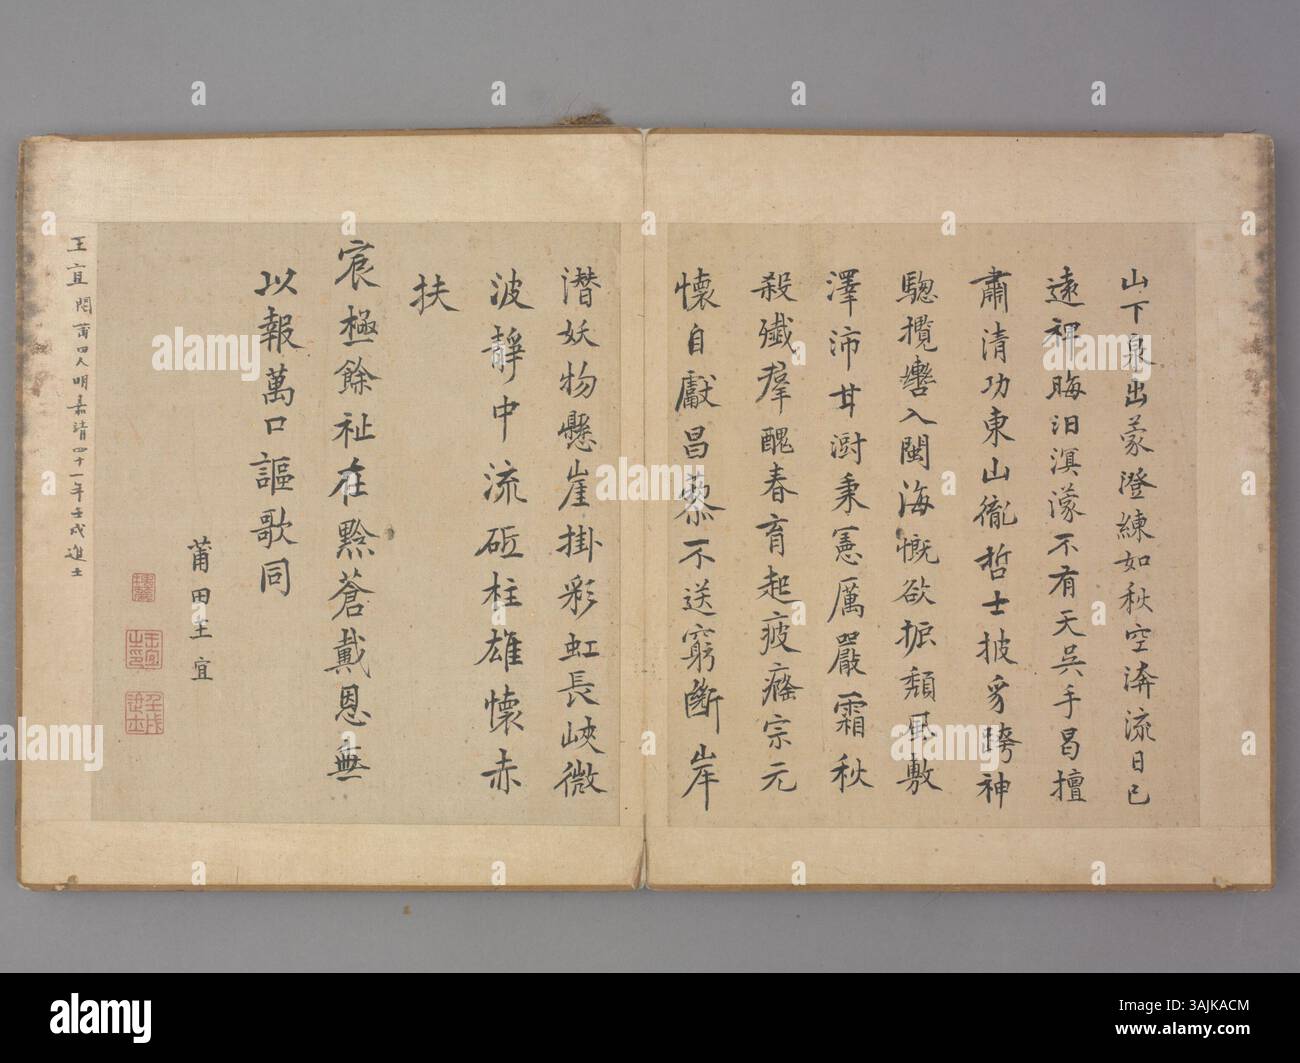 山下泉出蒙澄練如秋空渀流日已
遠裨晦汩溟濛不有天吳手曷擅
肅清功東山衛哲士披豸跨神
驄攬轡入閩海慨欲振頹風敷
澤沛甘澍秉憲厲嚴霜秋
殺殲羣醜春育起疲癃宗元
懷自獻昌黎不送窮斷岸
潜妖物懸崖掛彩虹長峽微
波靜中流砥柱雄懷赤
扶
宸極餘祉在黔蒼戴恩無
以報萬口謳歌同
莆田王宜
王宜之印
壬戌進士
王宜閩莆田人明嘉靖四十一年壬戌進士
alamy
Image ID: 3AJKACM
www.alamy.com